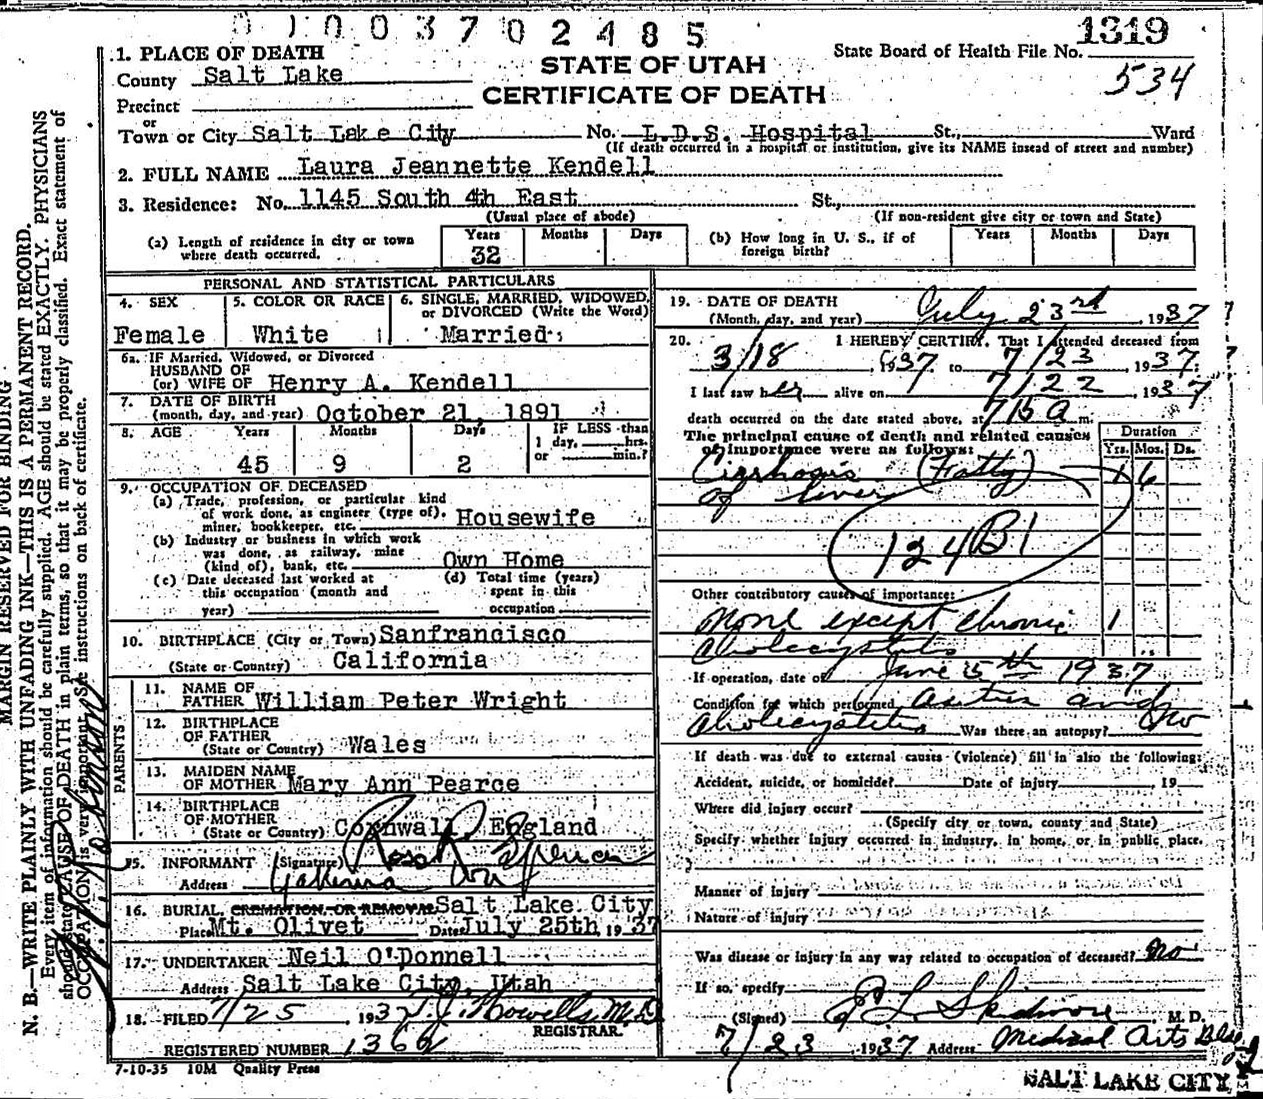 0 1 0 0 3 7 0 2 4 8 5
1319
1. PLACE OF DEATH
STATE OF UTAH
State Board of Health File No.
County Salt Lake
CERTIFICATE OF DEATH
534
Precinct
or
Town or City Salt Lake City No. L.D.S. Hospital St., Ward
(If death occurred in a hospital or institution, give its NAME instead of street and number)
2. FULL NAME Laura Jeannette Kendell
3. Residence: No. 1145 South 4th East St.,
(Usual place of abode) (If non-resident give city or town and State)
(a) Length of residence in city or town where death occurred. Years 32 Months Days
(b) How long in U. S., if of foreign birth? Years Months Days
PERSONAL AND STATISTICAL PARTICULARS
4. SEX Female
5. COLOR OR RACE White
6. SINGLE, MARRIED, WIDOWED, or DIVORCED (Write the Word) Married
6a. IF Married, Widowed, or Divorced
HUSBAND OF
(or) WIFE OF Henry A. Kendell
7. DATE OF BIRTH
(month, day, and year) October 21, 1891
8. AGE Years Months Days IF LESS than
45 9 2 1 day, hrs.
or min.?
9. OCCUPATION OF DECEASED
(a) Trade, profession, or particular kind
of work done, as engineer (type of),
miner, bookkeeper, etc. Housewife
(b) Industry or business in which work
was done, as railway, mine
(kind of), bank, etc. Own Home
(c) Date deceased last worked at
this occupation (month and
year)
(d) Total time (years)
spent in this
occupation
10. BIRTHPLACE (City or Town) Sanfrancisco
(State or Country) California
PARENTS
11. NAME OF
FATHER William Peter Wright
12. BIRTHPLACE
OF FATHER
(State or Country) Wales
13. MAIDEN NAME
OF MOTHER Mary Ann Pearce
14. BIRTHPLACE
OF MOTHER
(State or Country) Cornwall, England
15. INFORMANT (Signature)
Address Yakima
16. BURIAL, CREMATION, OR REMOVAL Salt Lake City
Place Mt. Olivet Date July 25th 1937
17. UNDERTAKER Neil O'Donnell
Address Salt Lake City, Utah
18. FILED 7/25 1937 T.J. Howells, M.D.
REGISTRAR.
REGISTERED NUMBER 1366
7-10-35 10M Quality Press
19. DATE OF DEATH
(Month, day, and year) July 23rd, 1937
20. I HEREBY CERTIFY, That I attended deceased from
3/18, 1937 to 7/23, 1937;
I last saw her alive on 7/22, 1937
death occurred on the date stated above, at 715 a m.
The principal cause of death and related causes
of importance were as follows:
Duration
Yrs. Mos. Ds.
Cirrhosis (Fatty) 1 6
of liver
124B1
Other contributory causes of importance:
None except chronic 1
Cholecystitis
If operation, date of June 5th 1937
Condition for which performed and
Cholecystitis Was there an autopsy? No
If death was due to external causes (violence) fill in also the following:
Accident, suicide, or homicide? Date of injury, 19
Where did injury occur?
(Specify city or town, county and State)
Specify whether injury occurred in industry, in home, or in public place.
Manner of injury
Nature of injury
Was disease or injury in any way related to occupation of deceased? no
If so, specify
(Signed) E L Skidmore M. D.
7/23 1937 Address Medical Arts Bldg
SALT LAKE CITY
MARGIN RESERVED FOR BINDING
N. B.—WRITE PLAINLY WITH UNFADING INK—THIS IS A PERMANENT RECORD.
Every item of information should be carefully supplied. AGE should be stated EXACTLY. PHYSICIANS
should state CAUSE OF DEATH in plain terms, so that it may be properly classified. Exact statement of
OCCUPATION is very important. See instructions on back of certificate.